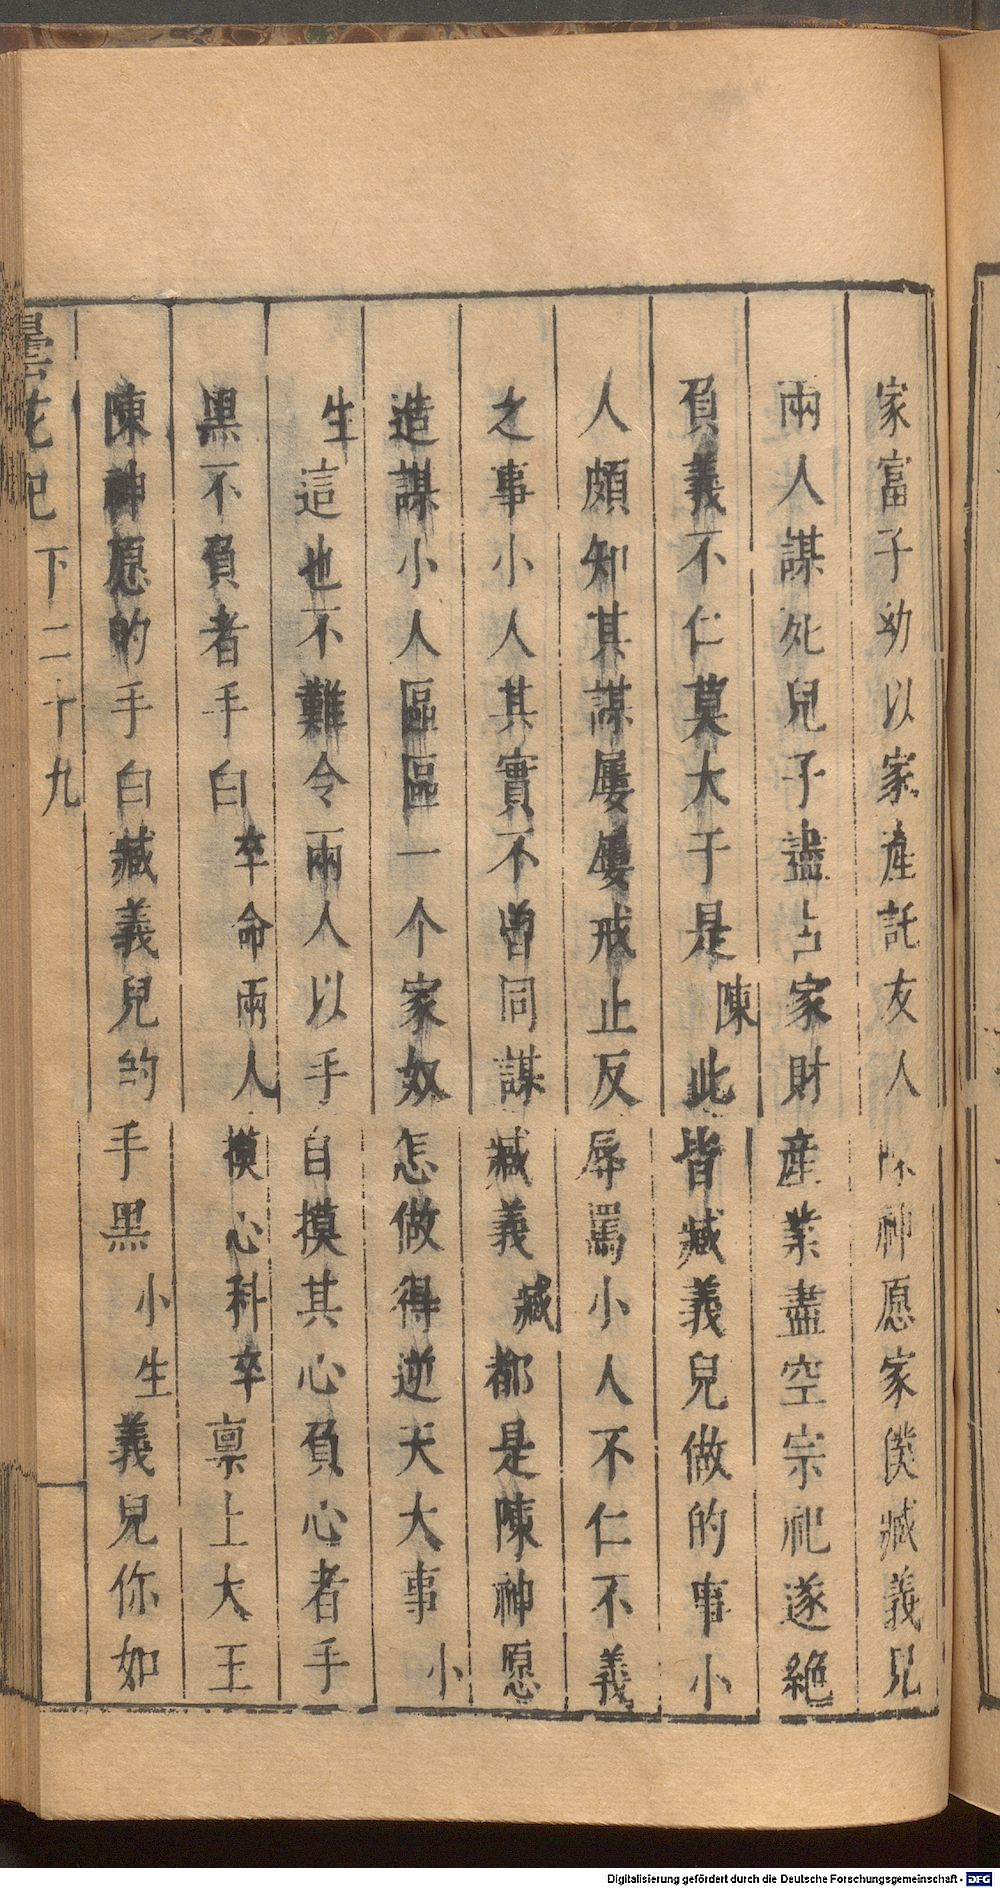 家富子幼以家產託友人陳神愿家僕臧義兒
兩人謀死兒子盡占家財產業盡空宗祀遂絶
負義不仁莫大于是陳此皆臧義兒做的事小
人頗知其謀屢屢戒止反辱罵小人不仁不義
之事小人其實不曾同謀臧義臧都是陳神愿
造謀小人區區一个家奴怎做得逆天大事小
生這也不難令兩人以手自摸其心負心者手
黑不負者手白卒命兩人摸心科卒禀上大王
陳神愿的手白臧義兒的手黑小生義兒你如
曇花記 下二十九
Digitalisierung gefördert durch die Deutsche Forschungsgemeinschaft - DFG